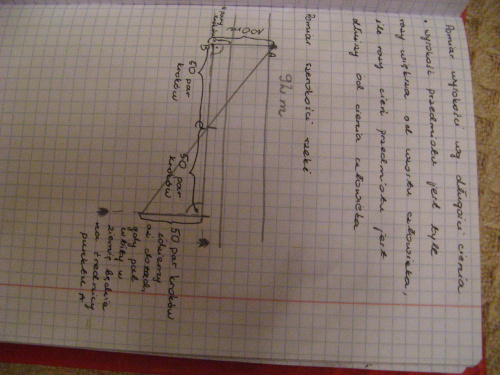 Pomiar wysokości wg długości cienia
• wysokość przedmiotu jest tyle
razy większa od wzrostu człowieka,
ile razy cień przedmiotu jest
dłuższy od cienia człowieka
Pomiar szerokości rzeki
92m
100m
A
B
50 par
kroków
C
50 par
kroków
50 par kroków
idziemy
aż dotąd,
gdy pal
wbity w
ziemię będzie
na średnicy
punktu A